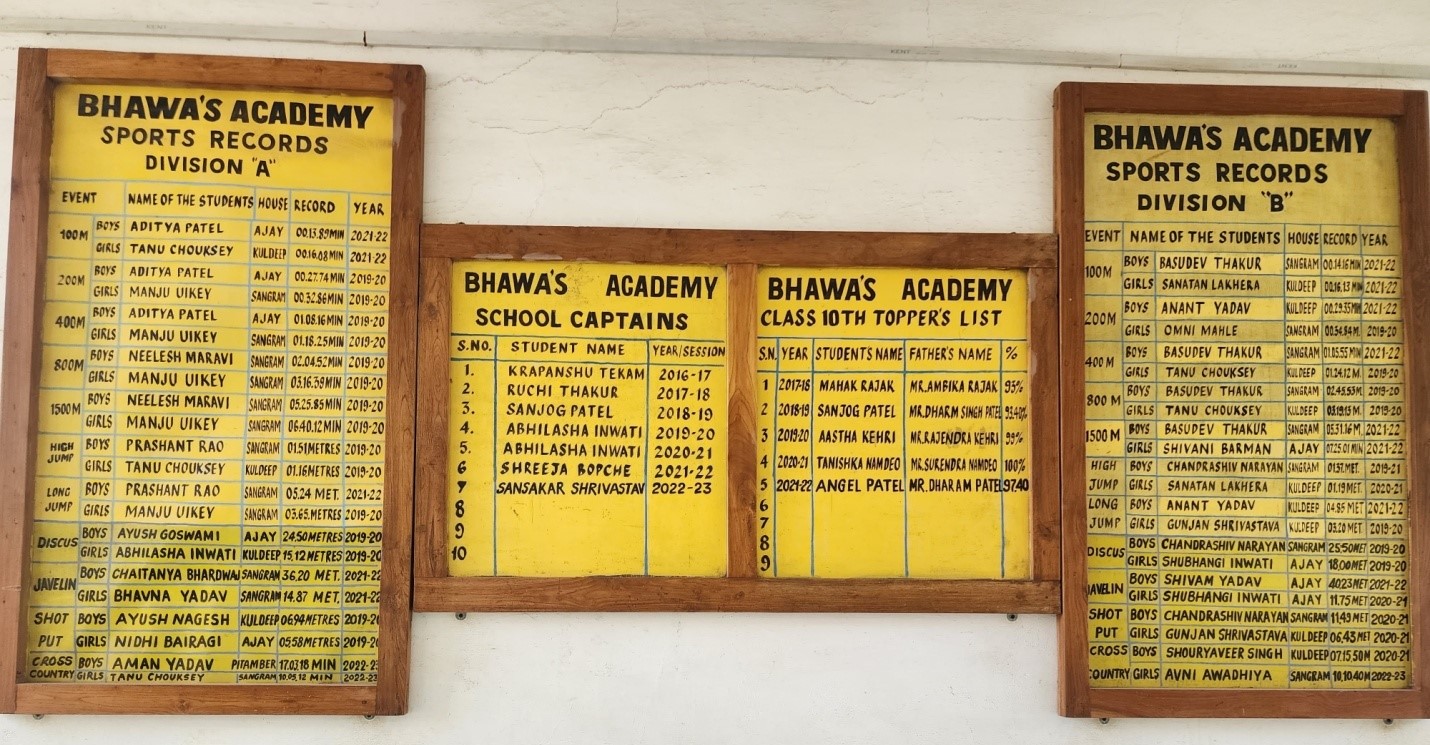 BHAWA'S ACADEMY
SPORTS RECORDS
DIVISION "A"
EVENT NAME OF THE STUDENTS HOUSE RECORD YEAR
100M BOYS ADITYA PATEL AJAY 00.13.89MIN 2021-22
GIRLS TANU CHOUKSEY KULDEEP 00.16.08MIN 2021-22
200M BOYS ADITYA PATEL AJAY 00.27.74MIN 2019-20
GIRLS MANJU UIKEY SANGRAM 00.32.86MIN 2019-20
400M BOYS ADITYA PATEL AJAY 01.08.16MIN 2019-20
GIRLS MANJU UIKEY SANGRAM 01.18.25MIN 2019-20
800M BOYS NEELESH MARAVI SANGRAM 02.04.52MIN 2019-20
GIRLS MANJU UIKEY SANGRAM 03.16.39MIN 2019-20
1500M BOYS NEELESH MARAVI SANGRAM 05.25.85MIN 2019-20
GIRLS MANJU UIKEY SANGRAM 06.40.12MIN 2019-20
HIGH JUMP BOYS PRASHANT RAO SANGRAM 01.51METRES 2019-20
GIRLS TANU CHOUKSEY KULDEEP 01.16METRES 2019-20
LONG JUMP BOYS PRASHANT RAO SANGRAM 05.24 MET. 2021-22
GIRLS MANJU UIKEY SANGRAM 03.65.METRES 2019-20
DISCUS BOYS AYUSH GOSWAMI AJAY 24.50METRES 2019-20
GIRLS ABHILASHA INWATI KULDEEP 15.12METRES 2019-20
JAVELIN BOYS CHAITANYA BHARDWAJ SANGRAM 36,20 MET. 2021-22
GIRLS BHAVNA YADAV SANGRAM 14.87 MET. 2021-22
SHOT BOYS AYUSH NAGESH KULDEEP 06.94METRES 2019-20
PUT GIRLS NIDHI BAIRAGI AJAY 05.58METRES 2019-20
CROSS BOYS AMAN YADAV PITAMBER 17.03.18 MIN 2022-23
COUNTRY GIRLS TANU CHOUKSEY SANGRAM 10.05.12 MIN 2022-23
BHAWA'S ACADEMY
SCHOOL CAPTAINS
S.NO. STUDENT NAME YEAR/SESSION
1. KRAPANSHU TEKAM 2016-17
2. RUCHI THAKUR 2017-18
3. SANJOG PATEL 2018-19
4. ABHILASHA INWATI 2019-20
5. ABHILASHA INWATI 2020-21
6 SHREEJA BOPCHE 2021-22
7 SANSAKAR SHRIVASTAV 2022-23
8
9
10
BHAWA'S ACADEMY
CLASS 10TH TOPPER'S LIST
S.N. YEAR STUDENTS NAME FATHER'S NAME %
1 2017-18 MAHAK RAJAK MR.AMBIKA RAJAK 95%
2 2018-19 SANJOG PATEL MR.DHARM SINGH PATEL
3 2019-20 AASTHA KEHRI MR.RAJENDRA KEHRI 99%
4 2020-21 TANISHKA NAMDEO MR.SURENDRA NAMDEO 100%
5 2021-22 ANGEL PATEL MR.DHARAM PATEL 97.40
6
7
8
9
BHAWA'S ACADEMY
SPORTS RECORDS
DIVISION "B"
EVENT NAME OF THE STUDENTS HOUSE RECORD YEAR
100M BOYS BASUDEV THAKUR SANGRAM 00.14.16 MIN 2021-22
GIRLS SANATAN LAKHERA KULDEEP 00.16.13 MIN 2021-22
200M BOYS ANANT YADAV KULDEEP 00.29.35MIN 2021-22
GIRLS OMNI MAHLE SANGRAM 00.34.84M. 2019-20
400 M BOYS BASUDEV THAKUR SANGRAM 01.05.55 MIN 2021-22
GIRLS TANU CHOUKSEY KULDEEP 01.24.12 M. 2019-20
800 M BOYS BASUDEV THAKUR SANGRAM 2019-20
GIRLS TANU CHOUKSEY KULDEEP 03.19.15 M. 2019-20
1500 M BOYS BASUDEV THAKUR SANGRAM 05.31.16 M. 2021-22
GIRLS SHIVANI BARMAN AJAY 07.25.01 MIN 2021-22
HIGH BOYS CHANDRASHIV NARAYAN SANGRAM 01.37.MET.
JUMP GIRLS SANATAN LAKHERA KULDEEP 01.19 MET. 2020-21
LONG BOYS ANANT YADAV KULDEEP 04.95 MET 2021-22
JUMP GIRLS GUNJAN SHRIVASTAVA KULDEEP 03.20 MET 2019-20
DISCUS BOYS CHANDRASHIV NARAYAN SANGRAM 25.50MET 2019-20
GIRLS SHUBHANGI INWATI AJAY 18.00MET 2019-20
JAVELIN BOYS SHIVAM YADAV AJAY 40.23MET 2021-22
GIRLS SHUBHANGI INWATI AJAY 11.75MET 2020-21
SHOT BOYS CHANDRASHIV NARAYAN SANGRAM 11.49 MET 2020-21
PUT GIRLS GUNJAN SHRIVASTAVA KULDEEP 06.43 MET 2020-21
CROSS BOYS SHOURYAVEER SINGH KULDEEP 07.15.50M 2020-21
COUNTRY GIRLS AVNI AWADHIYA SANGRAM 10.10.40M 2022-23